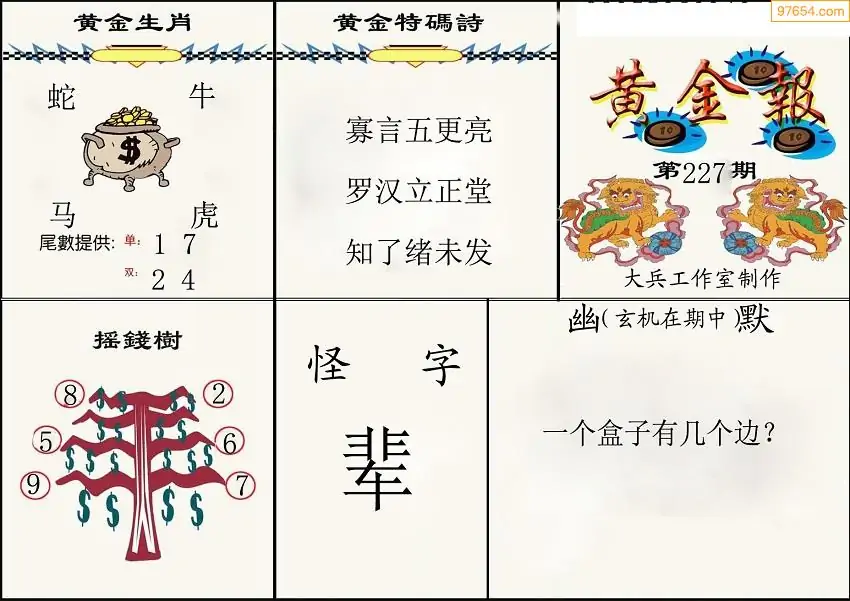 97654.com
黄金生肖
蛇 牛
$
马 虎
尾數提供: 单: 1 7
双: 2 4
黄金特碼詩
寡言五更亮
罗汉立正堂
知了绪未发
黄金報
10
10
10
第227期
大兵工作室制作
摇錢樹
8 2
5 6
9 7
怪 字
辈
幽(玄机在期中)默
一个盒子有几个边?